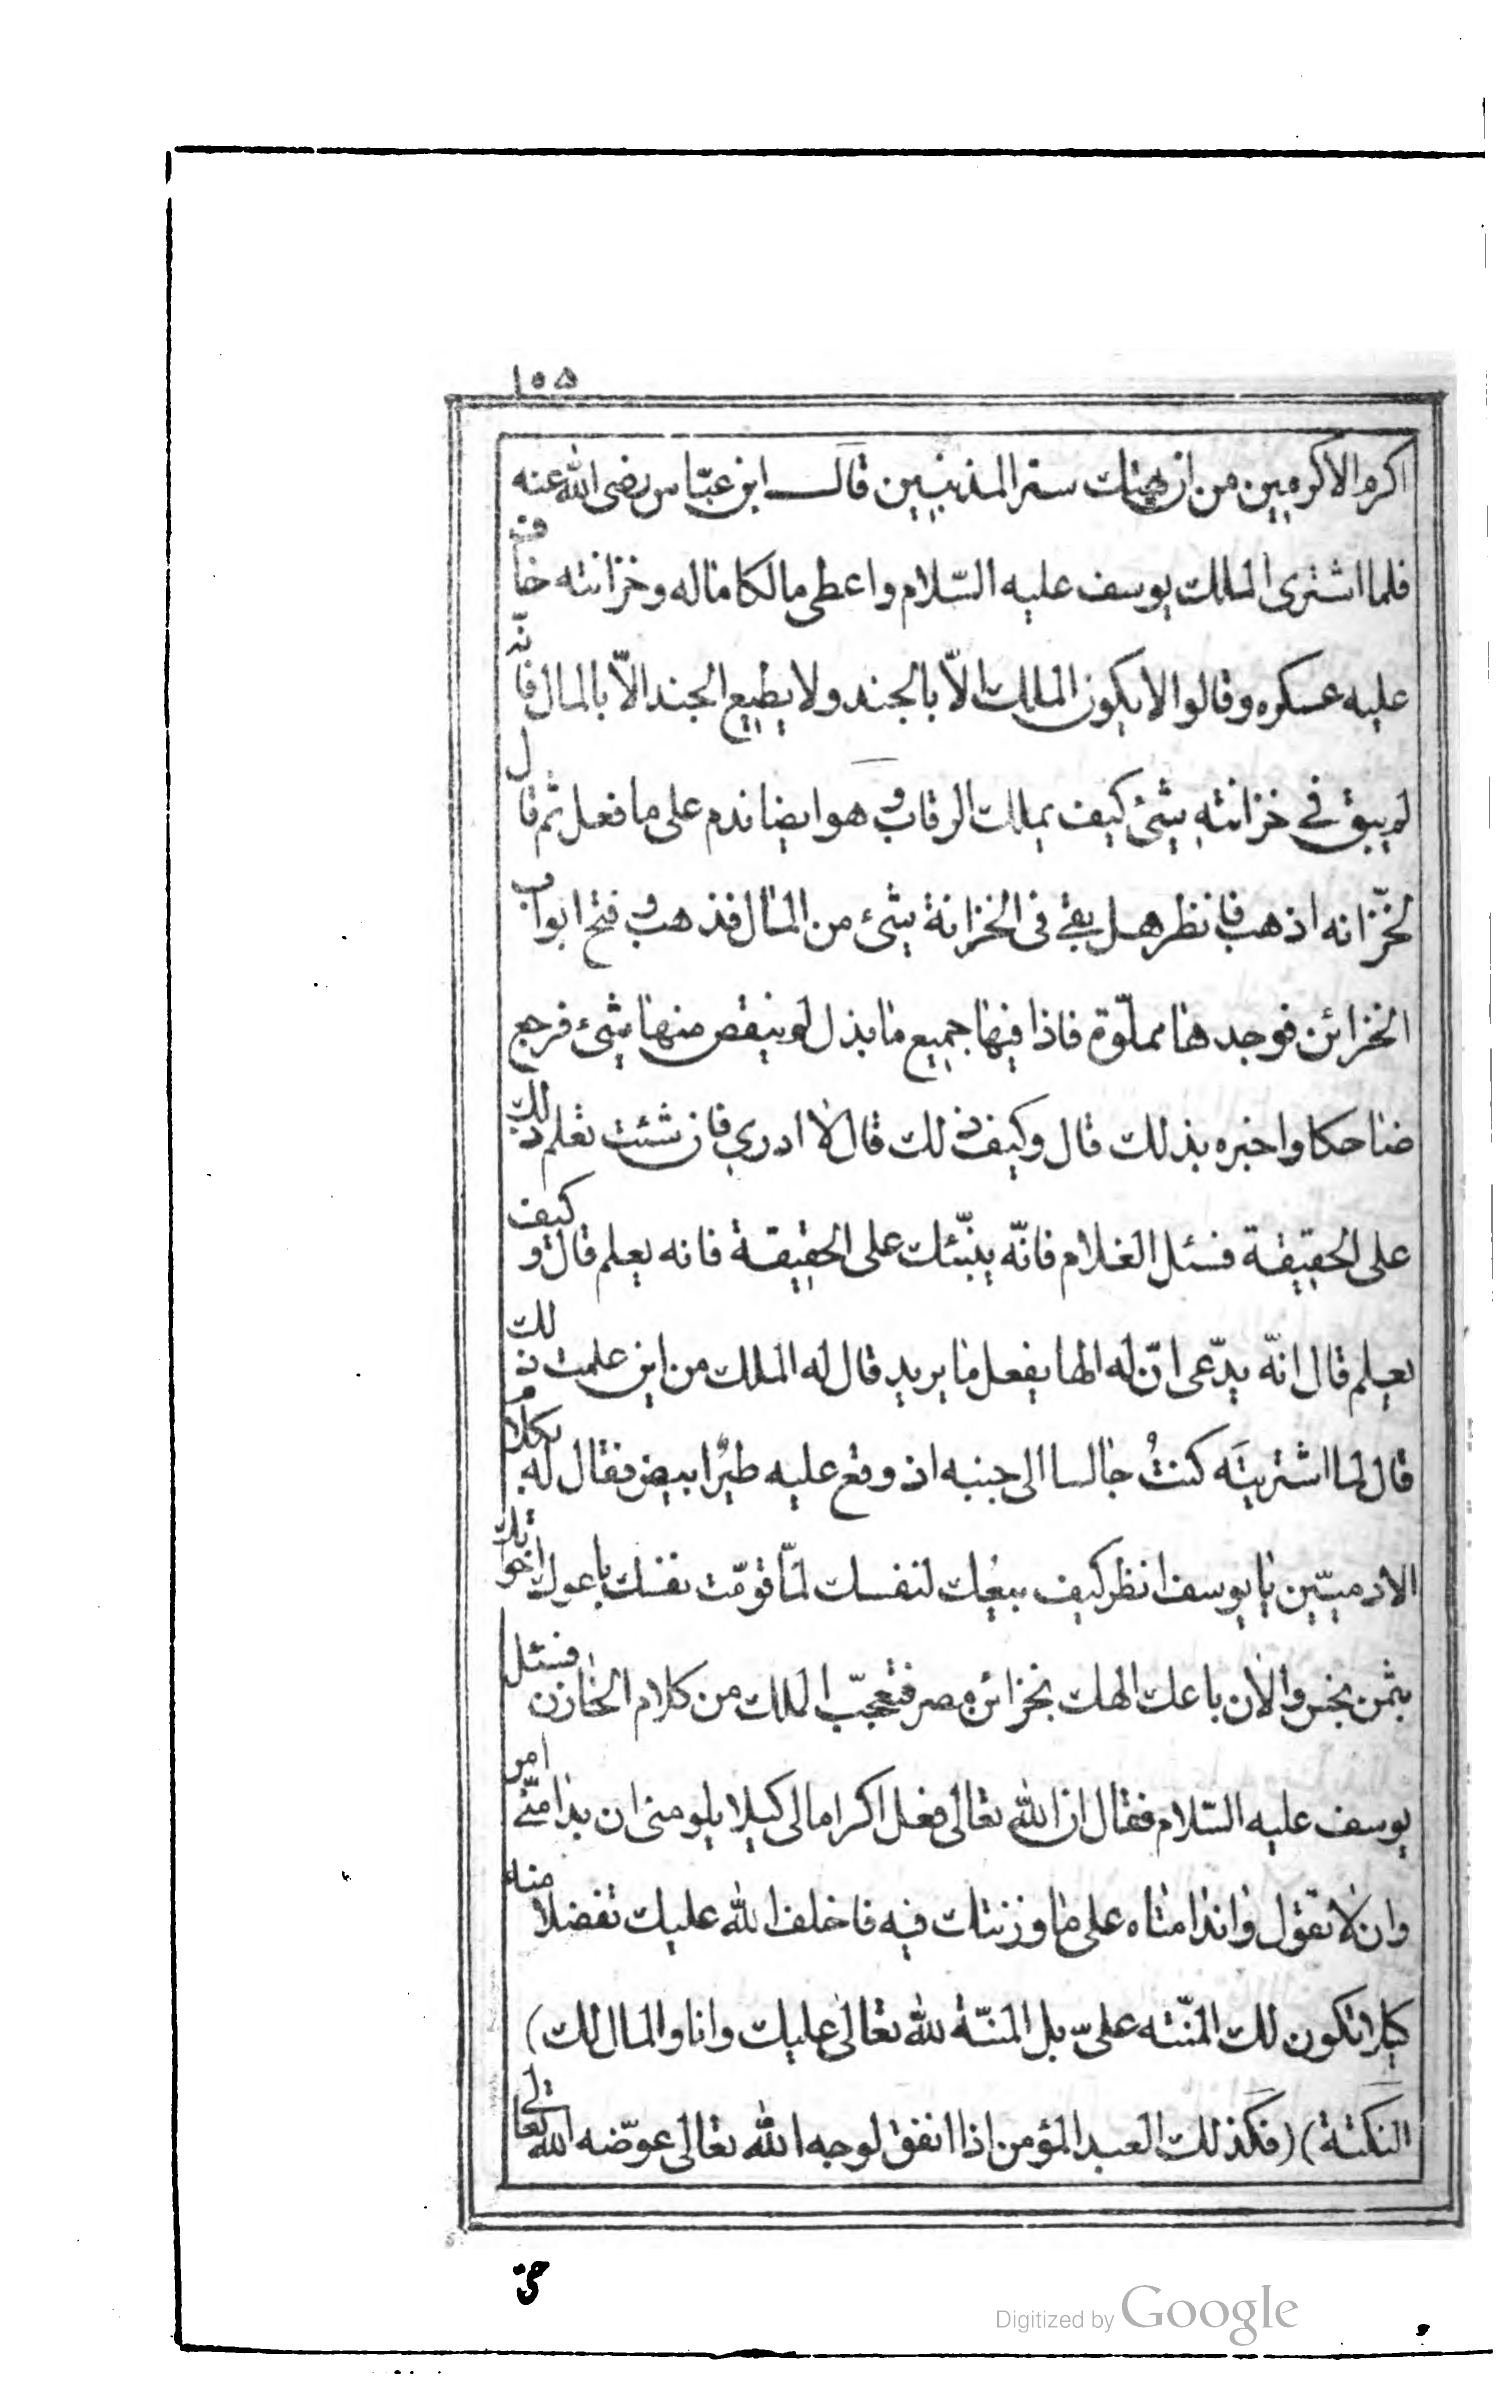 ١٠٥
اكرم الاكرمين من ان يهتك ستر المذنبين قال ابن عبّاس رضى الله عنه
فلما اشترى الملك يوسف عليه السّلام واعطى مالكا ماله وخزانته خاف
عليه عسكره وقالوا لا يكون الملك الّا بالجند ولا يطيع الجند الّا بالمال فانّه
لم يبق في خزانته شئ كيف يملك الرقاب وهو ايضا ندم على ما فعل ثم قال
لخزّانه اذهب فانظر هل بقى فى الخزانة شئ من المال فذهب وفتح ابواب
الخزائن فوجدها مملوّة فاذا فيها جميع ما بذل لم ينقص منها شئ فرجع
ضاحكا واخبره بذلك قال وكيف ذلك قال لا ادري فان شئت تعلم ذلك
على الحقيقة فسئل الغلام فانّه ينبّئك على الحقيقة فانه يعلم قال وكيف
يعلم قال انّه يدّعى انّ له الها يفعل ما يريد قال له الملك من اين علمت ذلك
قال لما اشتريتَه كنتُ جالسا الى جنبه اذ وقع عليه طيرٌ ابيض فقال له بكلام
الادميّين يا يوسف انظر كيف بيعك لنفسك لمّا قوّمت نفسك باعوك اخوانك
بثمن بخس والآن باعك الهك بخزائن مصر فتعجّب الملك من كلام الخازن فسئل
يوسف عليه السّلام فقال ان الله تعالى فعل اكراما لى كيلا يلومنى ان بدا منّى امر
وان لا تقول واندامتاه على ما وزنتك فيه فاخلف الله عليك تفضلا منه
كيلا تكون لك المنّته علىّ بل المنّة لله تعالى عليك وانا والمال لك )
النكتة ) ( فكذلك العبد المؤمن اذا انفق لوجه الله تعالى عوّضه الله تعالى
Digitized by Google